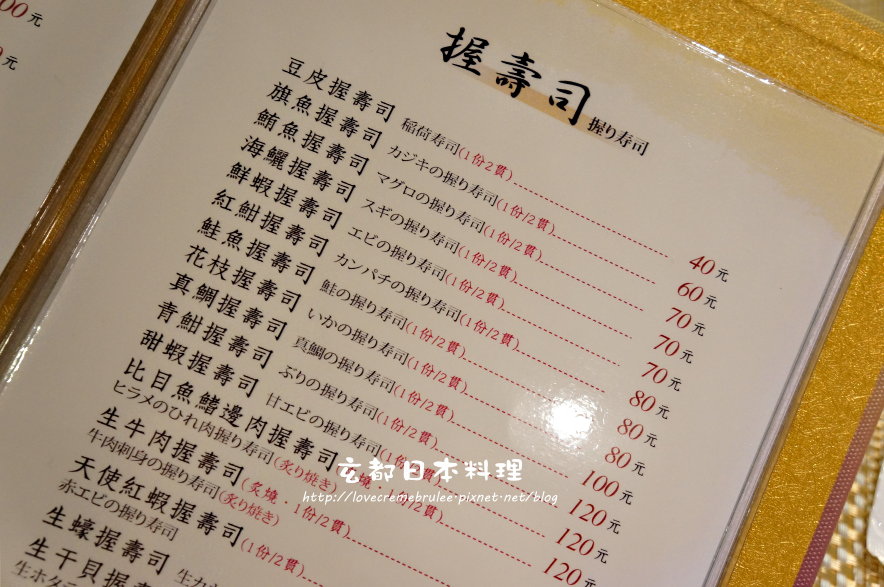 00元
0元
握壽司 握り寿司
豆皮握壽司 稲荷寿司(1份2貫) 40元
旗魚握壽司 カジキの握り寿司(1份/2貫) 60元
鮪魚握壽司 マグロの握り寿司(1份/2貫) 70元
海鱺握壽司 スギの握り寿司(1份/2貫) 70元
鮮蝦握壽司 エビの握り寿司(1份/2貫) 70元
紅魽握壽司 カンパチの握り寿司(1份/2貫) 80元
鮭魚握壽司 鮭の握り寿司(1份/2貫) 80元
花枝握壽司 いかの握り寿司(1份/2貫) 80元
真鯛握壽司 真鯛の握り寿司(1份/2貫) 100元
青魽握壽司 ぶりの握り寿司(1份/2貫) 120元
甜蝦握壽司 甘エビの握り寿司(1份/2貫) 120元
比目魚鰭邊肉握壽司 120元
ヒラメのひれ肉握り寿司(炙り焼き)
生牛肉握壽司(炙燒・1份/2貫)
牛肉刺身の握り寿司(炙り焼き)
天使紅蝦握壽司(1份/2貫)
赤エビの握り寿司
生蠔握壽司
生干貝握壽
玄都日本料理
http://lovecremebrulee.pixnet.net/blog